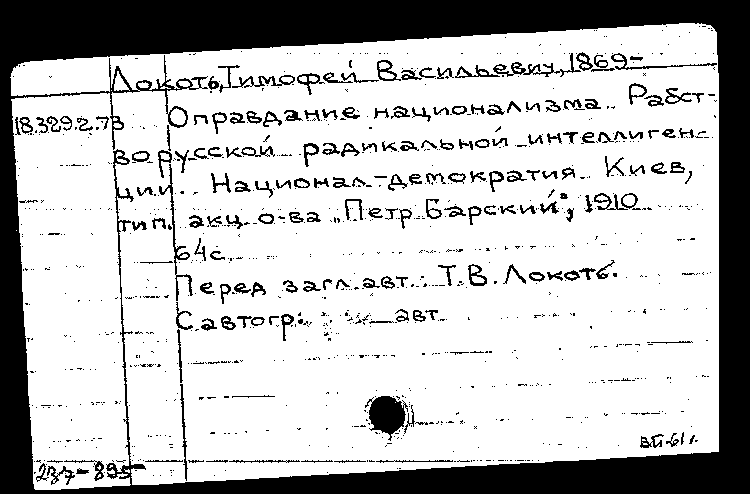 Локоть, Тимофей Васильевич, 1869-
18.329.2.73 Оправдание национализма. Рабст-
во русской радикальной интеллиген-
ции.. Национал-демократия. Киев,
тип. акц. о-ва „Петр Барский", 1910
64с.
Перед загл. авт.: Т.В. Локоть.
С автогр. авт
237-895